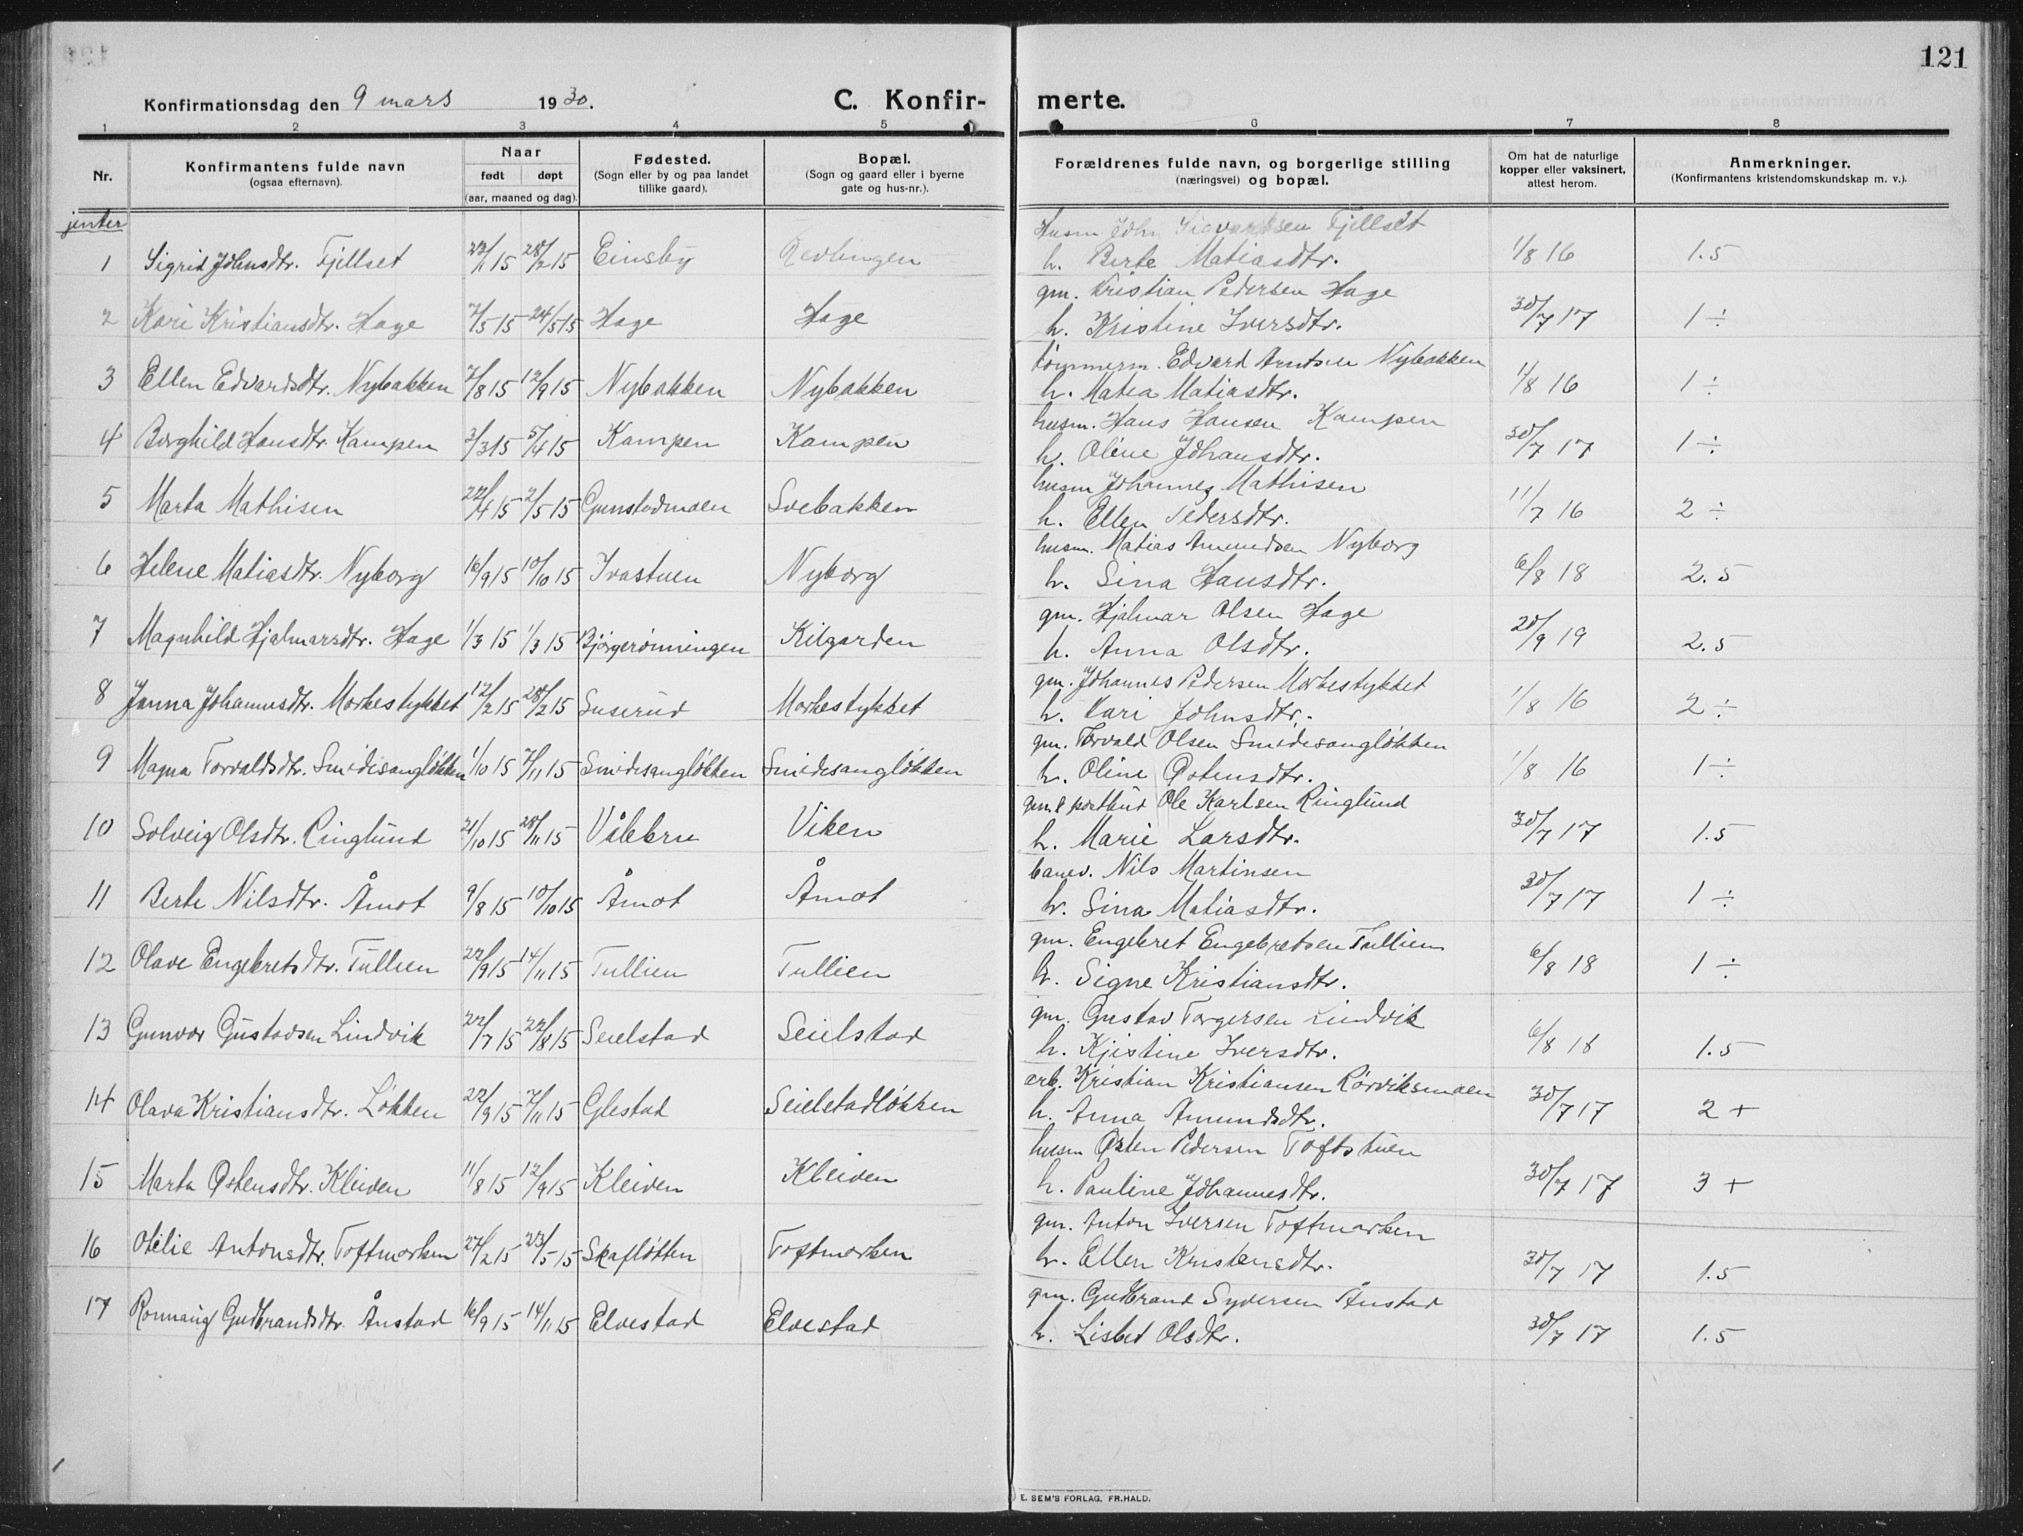 121
Konfirmationsdag den 9 mars 1930.
C. Konfir-
merte.
1 2 3 4 5 6 7 8
Nr.
Konfirmantens fulde navn
(ogsaa efternavn).
Naar
født døpt
(aar, maaned og dag).
Fødested.
(Sogn eller by og paa landet
tillike gaard).
Bopæl.
(Sogn og gaard eller i byerne
gate og hus-nr.).
Forældrenes fulde navn, og borgerlige stilling
(næringsvei) og bopæl.
Om hat de naturlige
kopper eller vaksinert,
attest herom.
Anmerkninger.
(Konfirmantens kristendomskundskap m. v.).
jenter
Husm John Sigvardsen Fjellset
1 Sigrid Johnsdtr. Fjellset 23/1 15 28/2 15 Einsby h. Berte Matiasdtr. 1/8 16 1.5
gm. Kristian Pedersen Hage
2 Kari Kristiansdtr. Hage 7/5 15 24/5 15 Hage Hage h. Kristine Iversdtr. 30/7 17 1 ÷
tømmerm. Edvard Arntsen Nybakken
3 Ellen Edvardsdtr. Nybakken 7/8 15 12/9 15 Nybakken Nybakken h. Matea Matiasdtr. 1/8 16 1 ÷
husm. Hans Hansen Kampen
4 Borghild Hansdtr. Kampen 3/3 15 5/4 15 Kampen Kampen h. Oline Johansdtr. 30/7 17 1 ÷
husm Johannes Mathisen
5 Marta Mathisen 22/4 15 2/5 15 Gunstadmoen Svebakken h. Ellen Pedersdtr. 11/7 16 2 ÷
husm. Matias Amundsen Nyborg
6 Helene Matiasdtr. Nyborg 16/9 15 10/10 15 Ivastuen Nyborg h. Sina Hansdtr. 6/8 18 2.5
gm. Hjalmar Olsen Hage
7 Magnhild Hjalmarsdtr. Hage 1/3 15 1/3 15 Bjørgerønningen Kilgarden h. Anna Olsdtr. 20/9 19 2.5
gm. Johannes Pedersen Morkestykket
8 Janna Johannesdtr. Morkestykket 12/2 15 28/2 15 Suserud Morkestykket h. Kari Johnsdtr. 1/8 16 2 ÷
gm. Torvald Olsen Smidesangløkken
9 Magna Torvaldsdtr. Smidesangløkken 1/10 15 7/11 15 Smidesangløkken Smidesangløkken h. Oline Østensdtr. 1/8 16 1 ÷
gm. & postbud Ole Karlsen Ringlund
10 Solveig Olsdtr. Ringlund 21/10 15 28/11 15 Vålebru Viken h. Marie Larsdtr. 30/7 17 1.5
banev. Nils Martinsen
11 Berte Nilsdtr. Åmot 9/8 15 10/10 15 Åmot Åmot h. Sina Matiasdtr. 30/7 17 1 ÷
gm. Engebret Engebretsen Tullien
12 Olave Engebretsdtr. Tullien 22/9 15 14/11 15 Tullien Tullien h. Signe Kristiansdtr. 6/8 18 1 ÷
gm. Gustav Torgersen Lindvik
13 Gunvor Gustavsen Lindvik 22/7 15 22/8 15 Seielstad Seielstad h. Kjistine Iversdtr. 6/8 18 1.5
arb. Kristian Kristiansen Rørviksmoen
14 Olava Kristiansdtr. Løkken 22/9 15 7/11 15 Glestad Seielstadløkken h. Anna Amundsdtr. 30/7 17 2 +
husm Østen Pedersen Toftstuen
15 Marta Østensdtr. Kleiven 11/8 15 12/9 15 Kleiven Kleiven h. Pauline Johannesdtr. 30/7 17 3 +
gm. Anton Iversen Toftmorken
16 Otilie Antonsdtr. Toftmorken 27/2 15 23/5 15 Skafløtten Toftmorken h. Ellen Kristensdtr. 30/7 17 1.5
gm. Gudbrand Syversen Ånstad
17 Ronnaug Gudbrandsdtr. Ånstad 16/9 15 14/11 15 Elvestad Elvestad h. Lisbet Olsdtr. 30/7 17 1.5
E. SEM'S FORLAG, FR.HALD.